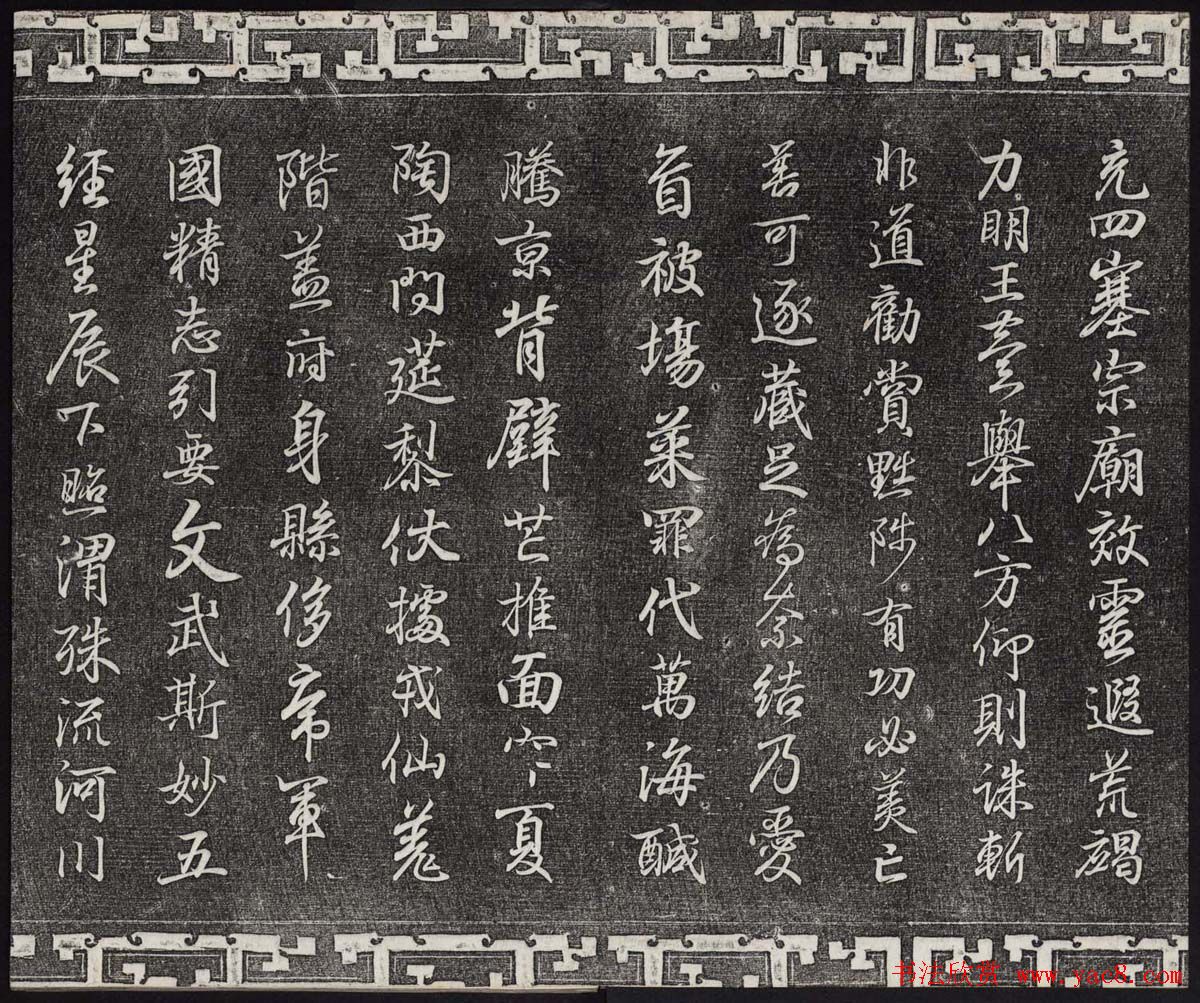 充四塞宗廟效靈遐荒竭
力明王壹舉八方仰則誅斬
非道勸賞黜陟有功必美亡
善可逐藏足為奈結乃愛
首被場菜罪代萬海醎
騰京背辟芒推面夏
陶西問筵黎伏據戎仙羗
階蓋府身縣侈帝軍
國精志引要文武斯妙五
經星辰下照渭殊流河川
书法欣赏 www.yac8.com